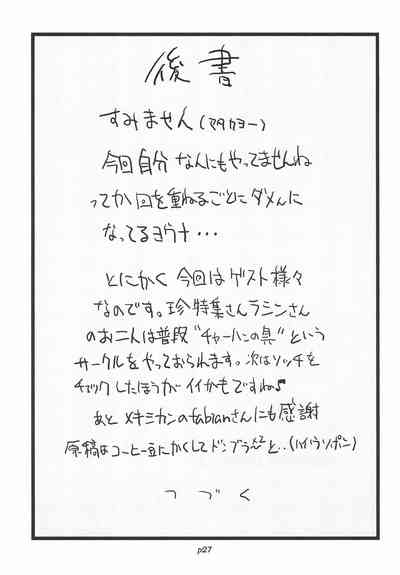 後書
すみません(マタカヨー)
今回自分なんにもやってませんね
ってか回を重ねるごとにダメんに
なってるヨウナ・・・
とにかく今回はゲスト様々
なのです。珍特集さんラミンさん
のお二人は普段"チャーハンの具"という
サークルをやっておられます。次はソッチを
チェックしたほうがイイかもですね♪
あとメキミカンのfabianさんにも感謝
原稿はコーヒー豆にかくして と‥(ハイウソポン)
つづく
p27